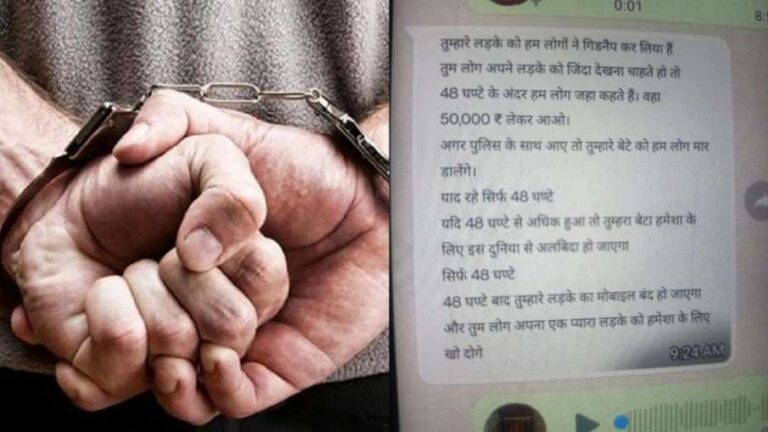 0:01
तुम्हारे लड़के को हम लोगों ने गिडनैप कर लिया हैं
तुम लोग अपने लड़के को जिंदा देखना चाहते हो तो
48 घण्टे के अंदर हम लोग जहा कहते हैं। वहा
50,000 ₹ लेकर आओ।
अगर पुलिस के साथ आए तो तुम्हारे बेटे को हम लोग मार
डालेंगे।
याद रहे सिर्फ 48 घण्टे
यदि 48 घण्टे से अधिक हुआ तो तुम्हरा बेटा हमेशा के
लिए इस दुनिया से अलबिदा हो जाएगा
सिर्फ 48 घण्टे
48 घण्टे बाद तुम्हारे लड़के का मोबाइल बंद हो जाएगा
और तुम लोग अपना एक प्यारा लड़के को हमेशा के लिए
खो दोगे
9:24 AM